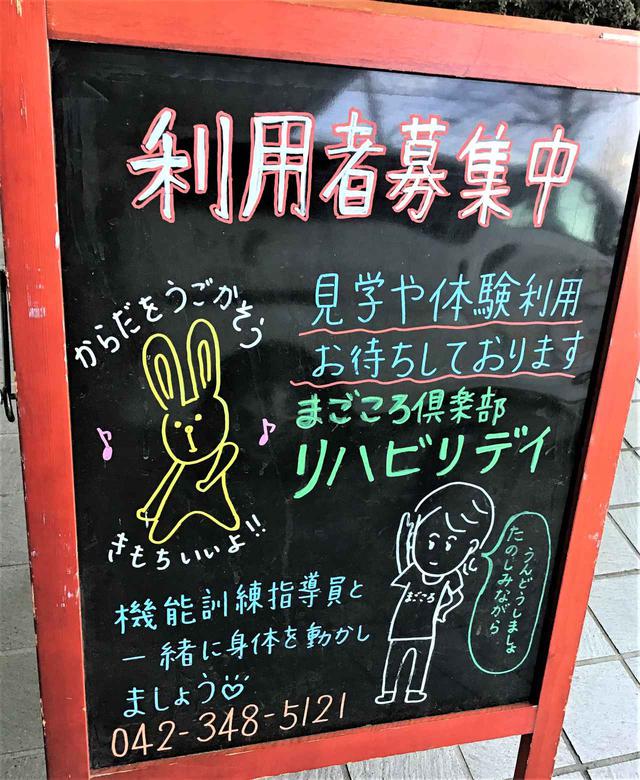 利用者募集中
見学や体験利用
お待ちしております
まごころ倶楽部
リハビリデイ
からだをうごかそう
きもちいいよ!!
まごころ
うんどうしましょ
たのしみながら
機能訓練指導員と
一緒に身体を動かし
ましょう♡
042-348-5121